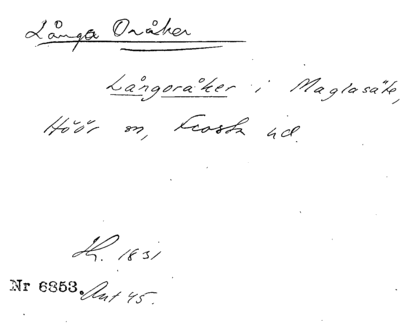 Långa Oråker
Långoråker i Maglasäte,
Höör sn, Frosta hd.
Sk. 1831
Nr 6853. Ant 45.